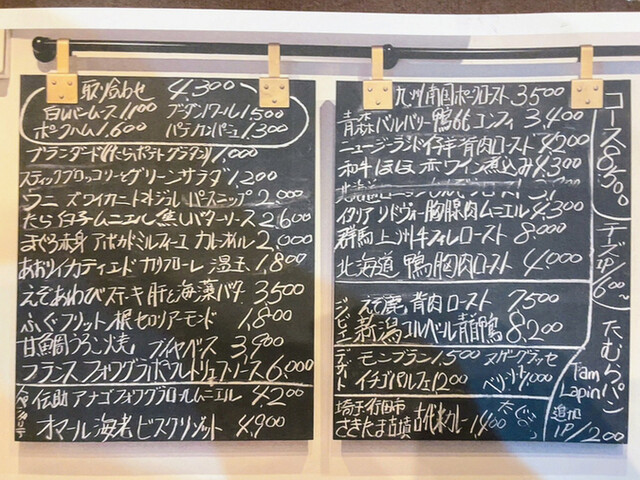 取り合わせ 4,300
白レバームース 1,100 ブーダンノワール 1,500
ポークハム 1,600 パテカンパーニュ 1,300
ブランダード(たらポテトグラタン) 1,000
スティックブロッコリーとグリーンサラダ 1,200
ウニ ズワイカニトマトジュレ パースニップ 2,000
たら白子ムニエル 焦しバターソース 2,600
まぐろ赤身 アボカドミルフィーユ 2,000
あおりイカ カリフローレ 温玉 1,800
えぞあわびステーキ 肝と海藻バター 3,500
ふぐフリット 根セロリアーモンド 1,800
甘鯛うろこ焼 ブイヤベース 3,900
フランス フォワグラポワレ トリュフソース 6,000
伝助アナゴフォワグラ ムニエル 4,200
オマール海老 ビスクリゾット 4,900
九州南国ポークロースト 3,500
青森バルバリー鴨もも コンフィ 3,400
ニュージーランド仔羊背肉ロースト 4,200
和牛ほほ赤ワイン煮込み 4,300
イタリア リドヴォー胸腺肉ムニエル 4,300
群馬上州牛フィレロースト 8,000
北海道 鴨胸肉ロースト 4,000
ジビエ
えぞ鹿 背肉ロースト 7,500
新潟 コルベール青首鴨 8,200
デザート
モンブラン 1,500 ヌガーグラッセ
イチゴパルフェ 1,200
埼玉行田市
さきたま古墳 古代米カレー 1,400
コース 8,500
チーズ 1P/600~
たむらパン
Pam
Lapin
追加
1P/200